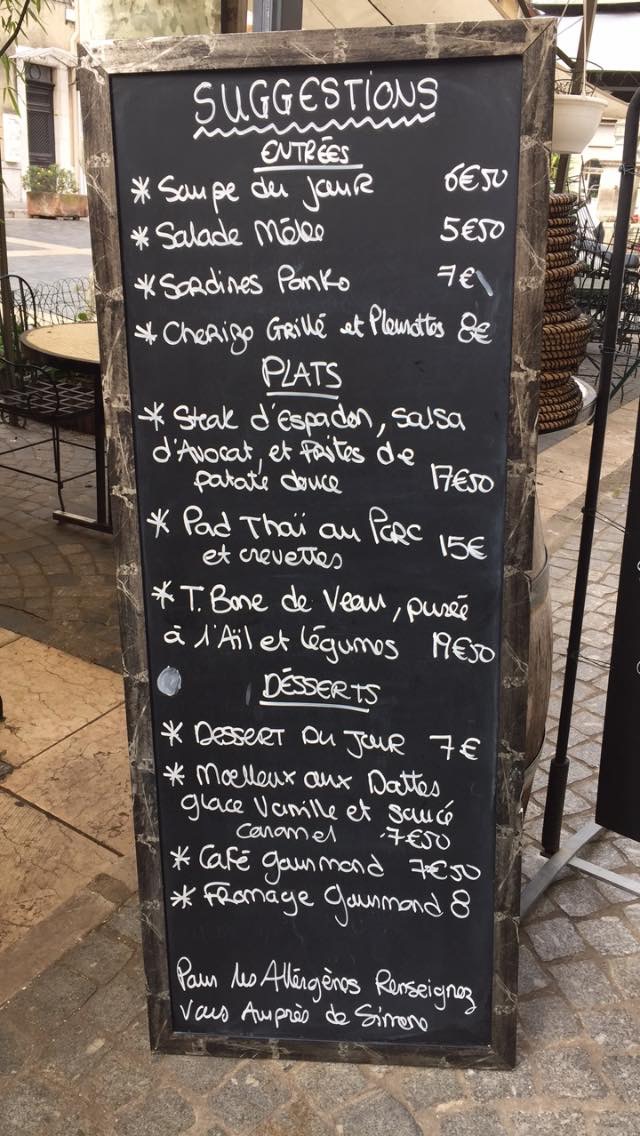 SUGGESTIONS
ENTRÉES
* Soupe du JouR 6€50
* Salade Mêlée 5€50
* Sardines Panko 7€
* CHorizo GRillé et Pleurottes 8€
PLATS
* Steak d'espadon, Salsa
d'Avocat, et frites de
patate douce 17€50
* Pad Thaï au PORC
et crevettes 15€
* T. Bone de Veau, purée
à l'Ail et légumes 19€50
DÉSSERTS
* DESSERT DU JOUR 7€
* Moelleux aux Dattes
glace Vanille et saucé
caramel 7€50
* Café gourmand 7€50
* FRomage Gourmand 8
Pour les Allérgènes Renseignez
Vous Auprès de